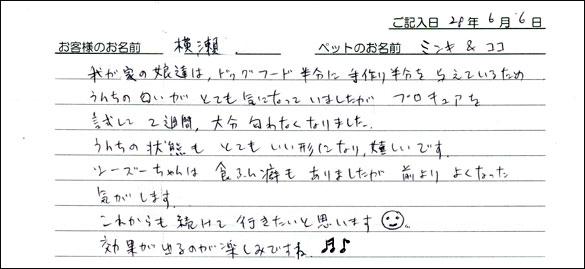 ご記入日 28年 6月 6日
お客様のお名前 横瀬 ペットのお名前 ミンキ & ココ
我が家の娘達は、ドッグフード半分に手作り半分を与えているため
うんちの匂いがとても気になっていましたが プロキュアを
試して2週間、大分匂わなくなりました。
うんちの状態もとてもいい形になり、嬉しいです。
シーズーちゃんは 食ふん癖もありましたが 前よりよくなった
気がします。
これからも続けて行きたいと思います
効果が出るのが楽しみですね。